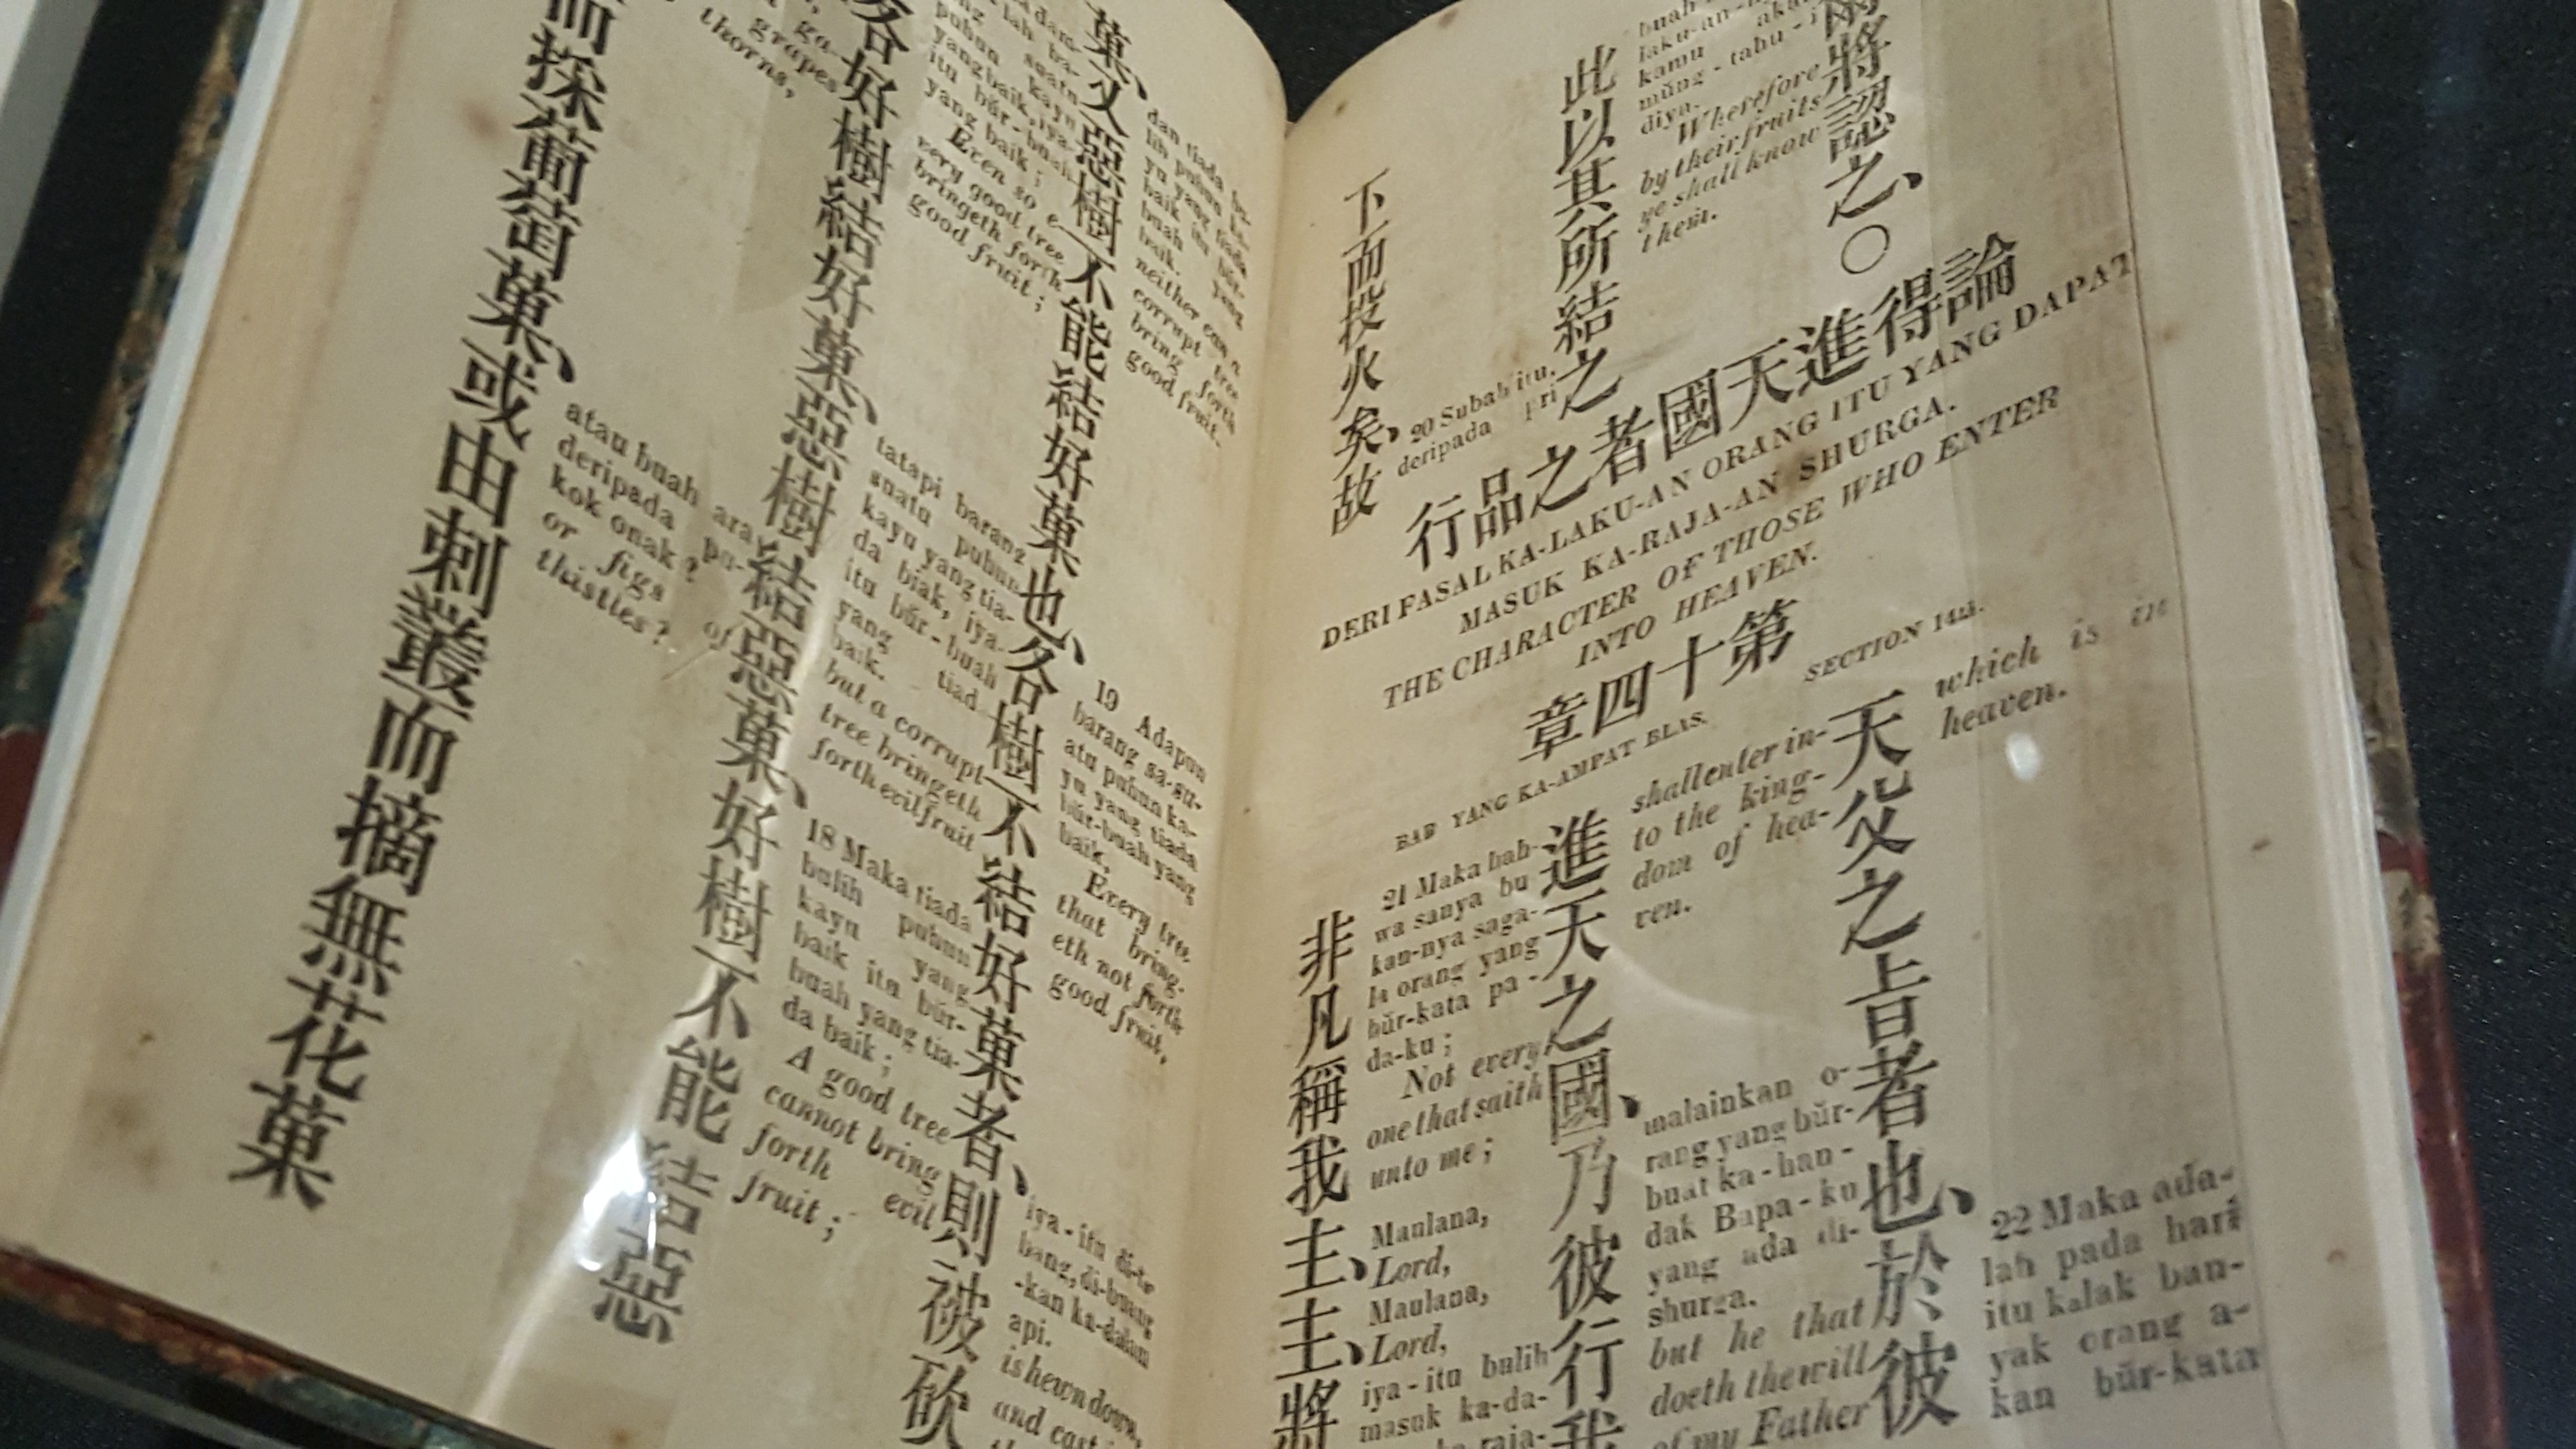 而探葡萄菓、或由刺叢而摘無花菓
grapes
thorns,
atau buah ara
deripada pu-
kok onak ?
or figs of
thistles ?
各好樹結好菓、惡樹結惡菓、好樹不能結惡
puhun suatu
yang baik, iya-
itu bŭr-buah
yang baik ;
Even so e-
very good tree
bringeth forth
good fruit ;
tatapi barang
suatu puhun
kayu yang tia-
da biak, iya-
itu bŭr-buah
yang tiad
baik.
but a corrupt
tree bringeth
forth evil fruit
18 Maka tiada
bulih puhun
kayu yang
baik itu bŭr-
buah yang tia-
da baik ;
A good tree
cannot bring
forth evil
fruit ;
菓、又惡樹不能結好菓也、各樹不結好菓者、則被砍
dan tiada bu-
lih puhun ka-
yu yang tiada
baik itu bŭr-
buah yang
baik.
neither can a
corrupt tree
bring forth
good fruit.
19 Adapun
barang sa-su-
atu puhun ka-
yu yang tiada
bŭr-buah yang
baik,
Every tree
that bring-
eth not forth
good fruit,
iya-itu di-te-
bang, di-buang
-kan ka-dalam
api.
is hewn down,
and cast
下而投火矣、故
20 Subab itu,
deripada
此以其所結之
kamu
mŭng-tahu-i
diya.
Wherefore
by their fruits
ye shall know
them.
將認之、○
行品之者國天進得論
DERI FASAL KA-LAKU-AN ORANG ITU YANG DAPAT
MASUK KA-RAJA-AN SHURGA.
THE CHARACTER OF THOSE WHO ENTER
INTO HEAVEN.
章四十第
BAB YANG KA-AMPAT BLAS.
SECTION 14th.
非凡稱我主、主、將
21 Maka bah-
wa sanya bu
kan-nya saga-
la orang yang
bŭr-kata pa-
da-ku ;
Not every
one that saith
unto me ;
Maulana,
Lord,
Maulana,
Lord,
iya-itu bulih
masuk ka-da-
進天之國、乃彼行我
shall enter in-
to the king-
dom of hea-
ven.
malainkan o-
rang yang bŭr-
buat ka-han-
dak Bapa-ku
yang ada di-
shurga.
but he that
doeth the will
of my Father
天父之旨者也、於彼
which is in
heaven.
22 Maka ada-
lah pada hari
itu kalak ban-
yak orang a-
kan bŭr-kata